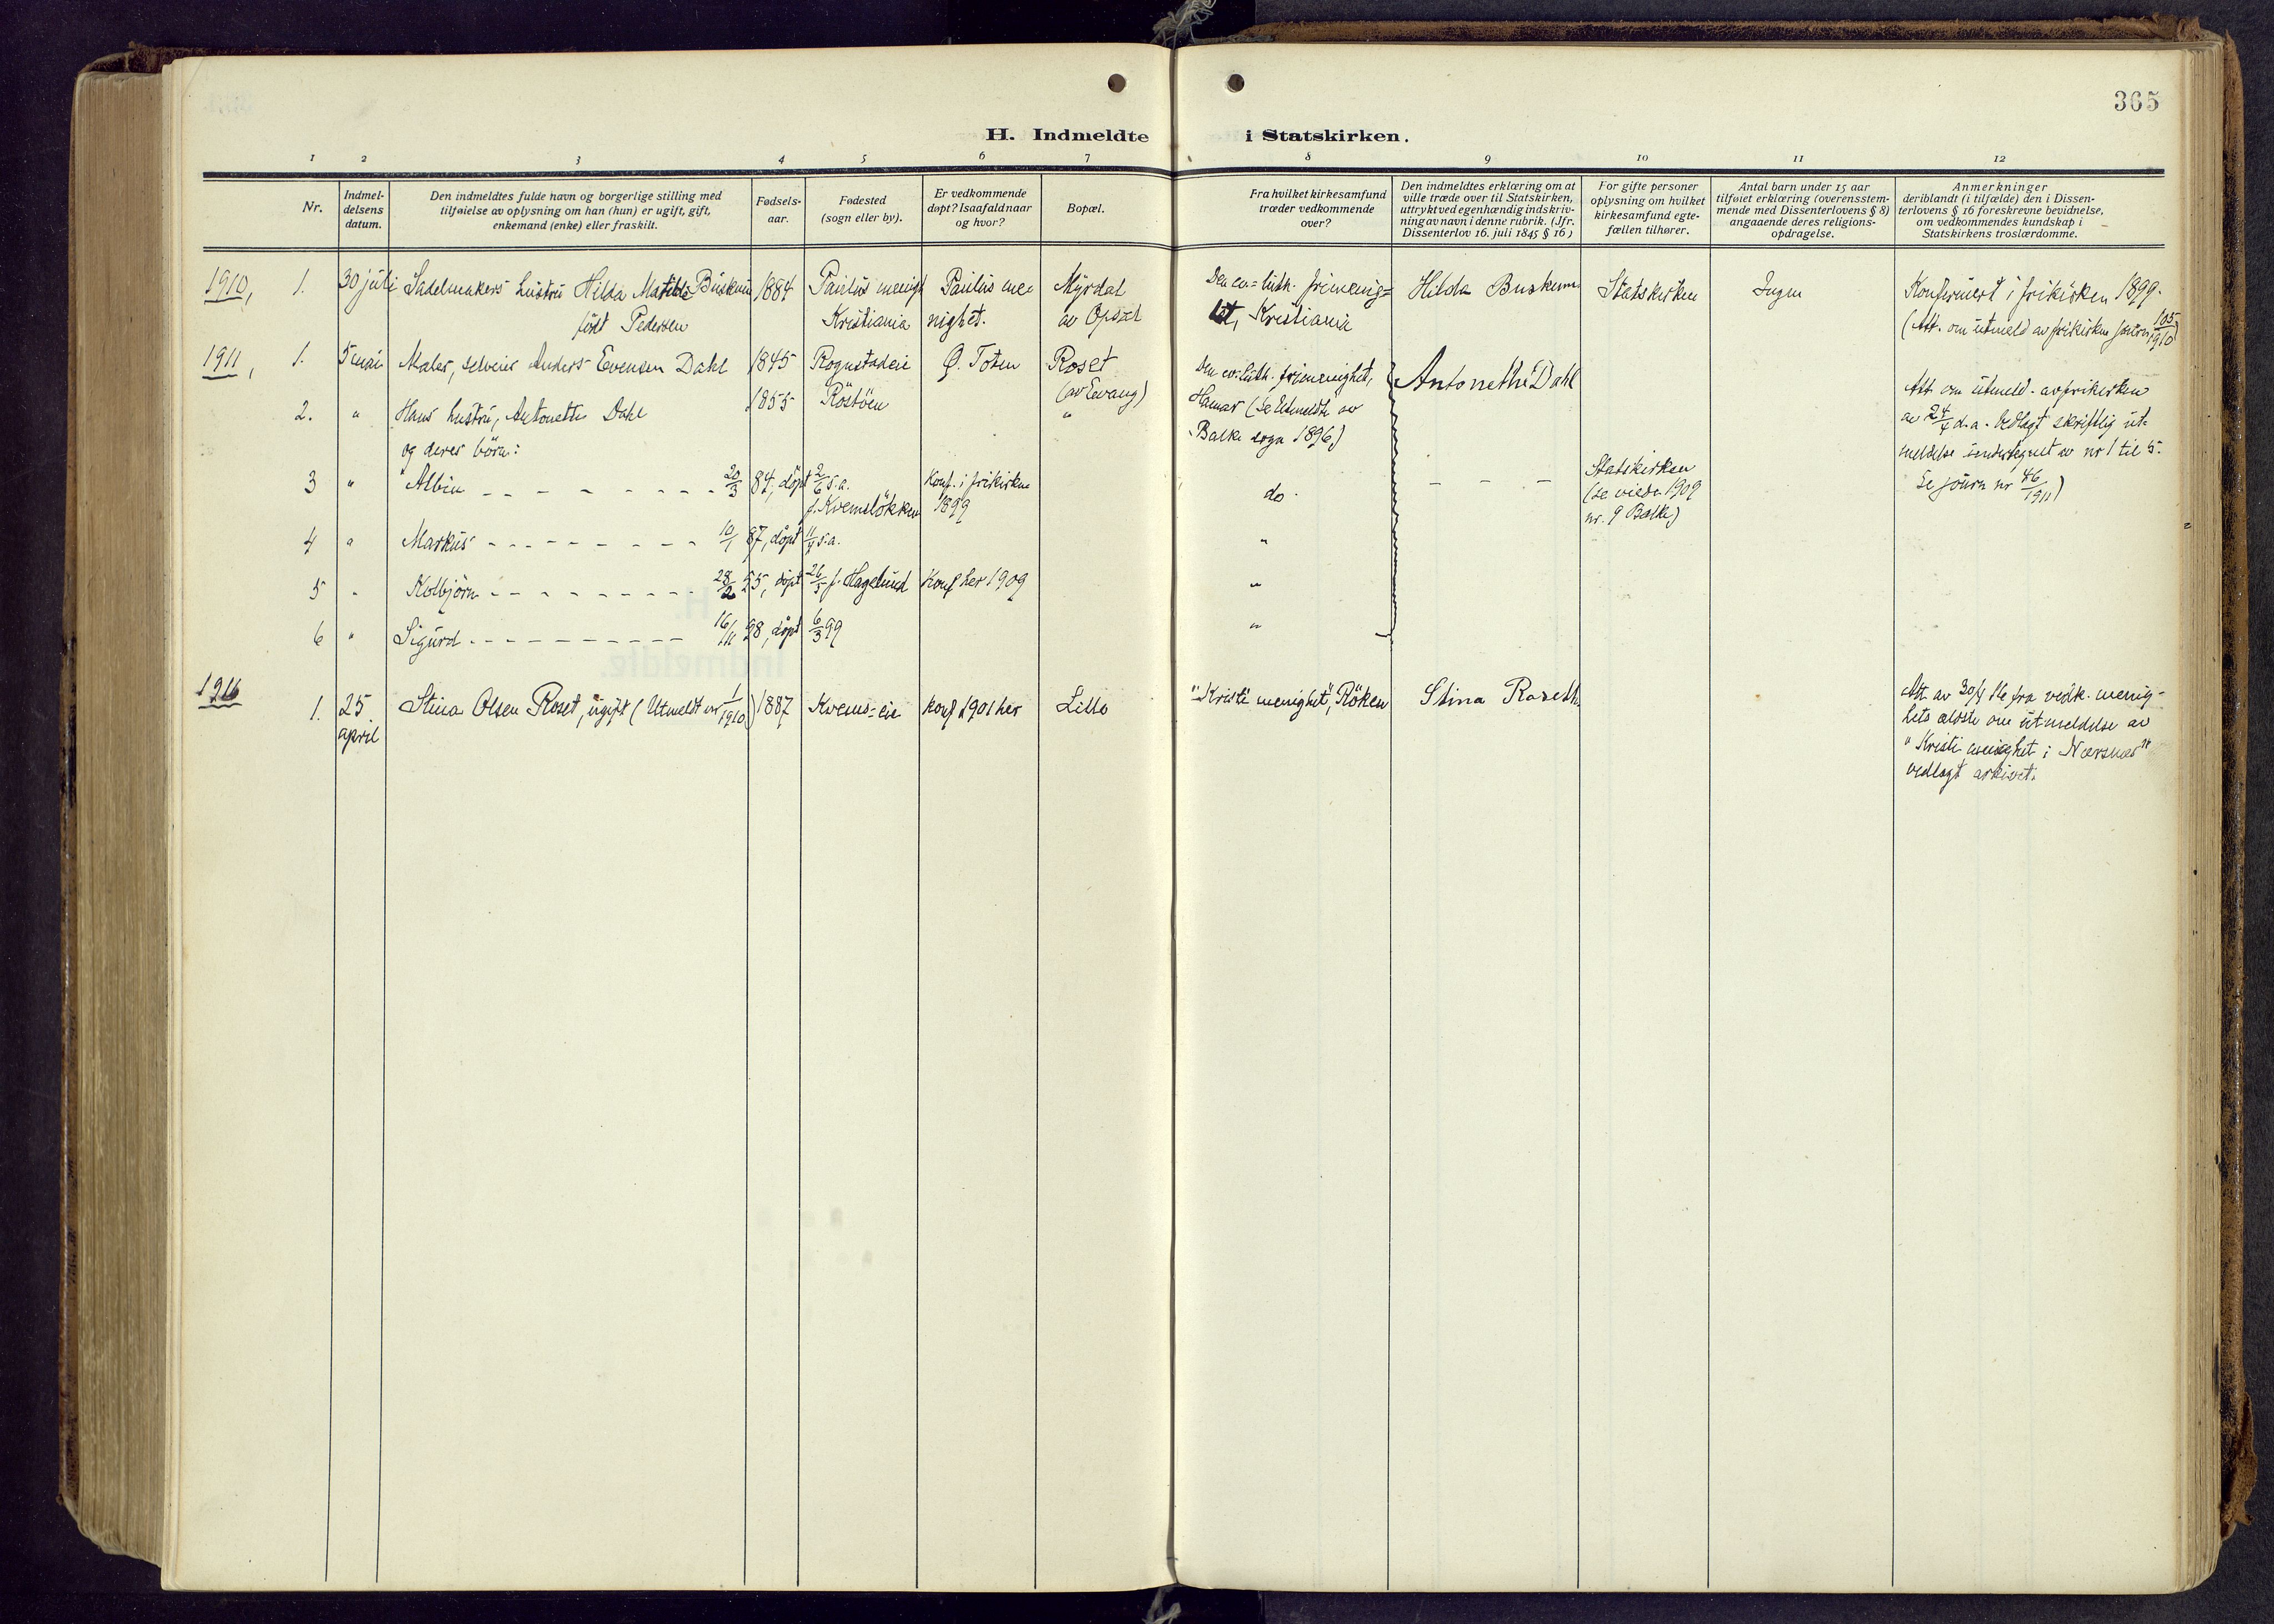 365
H. Indmeldte i Statskirken.
1 2 3 4 5 6 7 8 9 10 11 12
Nr.
Indmel-
delsens
datum.
Den indmeldtes fulde navn og borgerlige stilling med
tilføielse av oplysning om han (hun) er ugift, gift,
enkemand (enke) eller fraskilt.
Fødsels-
aar.
Fødested
(sogn eller by).
Er vedkommende
døpt? Isaafald naar
og hvor?
Bopæl.
Fra hvilket kirkesamfund
træder vedkommende
over?
Den indmeldtes erklæring om at
ville træde over til Statskirken,
uttrykt ved egenhændig indskriv-
ning av navn i denne rubrik. (Jfr.
Dissenterlov 16. juli 1845 § 16)
For gifte personer
oplysning om hvilket
kirkesamfund egte-
fællen tilhører.
Antal barn under 15 aar
tilføiet erklæring (overensstem-
mende med Dissenterlovens § 8)
angaaende deres religions-
opdragelse.
Anmerkninger
deriblandt (i tilfælde) den i Dissen-
terlovens § 16 foreskrevne bevidnelse,
om vedkommendes kundskap i
Statskirkens troslærdomme.
1910, 1. 30 juli Sadelmakers hustru Hilda Matilda Buskum 1884 Paulus menigh Paulus me- Myrdal
født Pedersen Kristiania nighet. av Opsal
Den ev.=luth. frimenig= Hilda Buskum Statskirken Ingen Konfirmert i frikirken 1899.
het, Kristiania (Att. om utmeld av frikirken journ 105/1910)
1911, 1. 5 mai Maler, selveier Anders Evensen Dahl 1845 Rognstadeie Ø. Toten Roset
(av Evang)
2. " Hans hustru, Antonette Dahl 1855 Røstøen "
og deres børn:
Den ev. luth. frimenighet, Antonethe Dahl
Hamar (se Utmeldte av
Balke sogn 1896)
Att. om utmeld. av frikirken
av 24/4 d.a. Vedlagt skriftlig ut-
meldelse undertegnet av nr 1 til 5.
Se journ nr 46/1911)
3 " Albin - - - - - - - - 20/3 84, døpt 2/6 s.a. Konf. i frikirken
f. Kvemsløkken 1899
do. - - - Statskirken
(se viede 1909
nr. 9 Balke)
4 " Markus - - - - - - - - - 10/1 87, døpt 11/4 s.a. "
5 " Kolbjørn - - - - - - - - - 28/2 95, døpt 26/5 f. Hagelund Konf her 1909 "
6 " Sigurd - - - - - - - - - - 16/11 98, døpt 6/3 99 "
1916 1. 25 Stina Olsen Roset, ugift (Utmeldt nr 1/1910) 1887 Kvems-eie konf 1901 her Lillo
april
"Kristi menighet", Røken Stina Roseth
Att. av 30/4 16 fra vedk. menig-
hets ældste om utmeldelse av
"Kristi menighet i Nærsnes"
vedlagt arkivet.